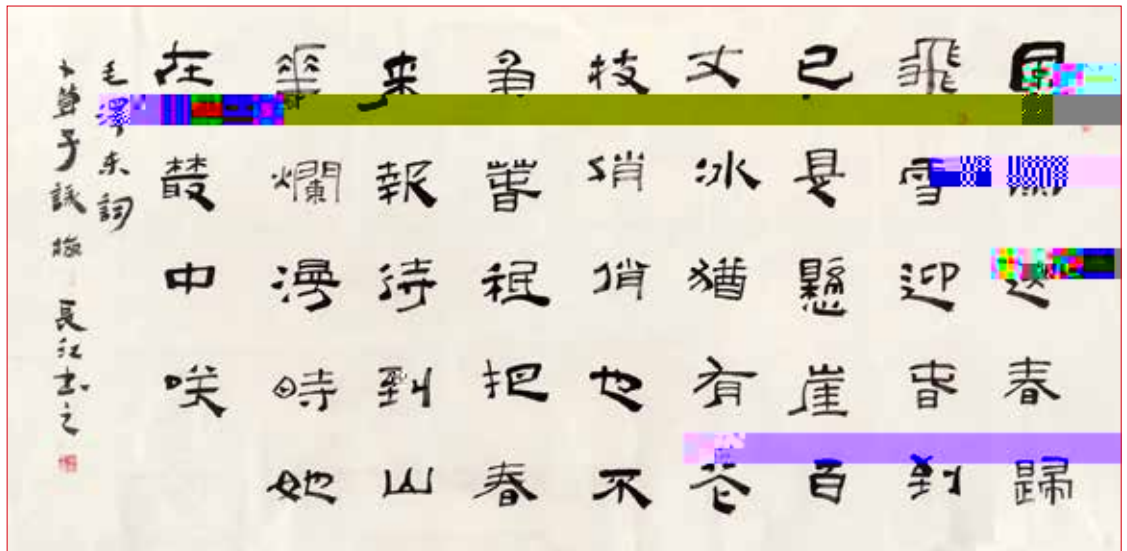 風送春歸
飛雪迎春到
已是懸崖百
丈冰猶有花
枝俏俏也不
爭春祗把春
来報待到山
華爛漫時她
在叢中咲
毛澤东詞
卜算子詠梅 長江書之